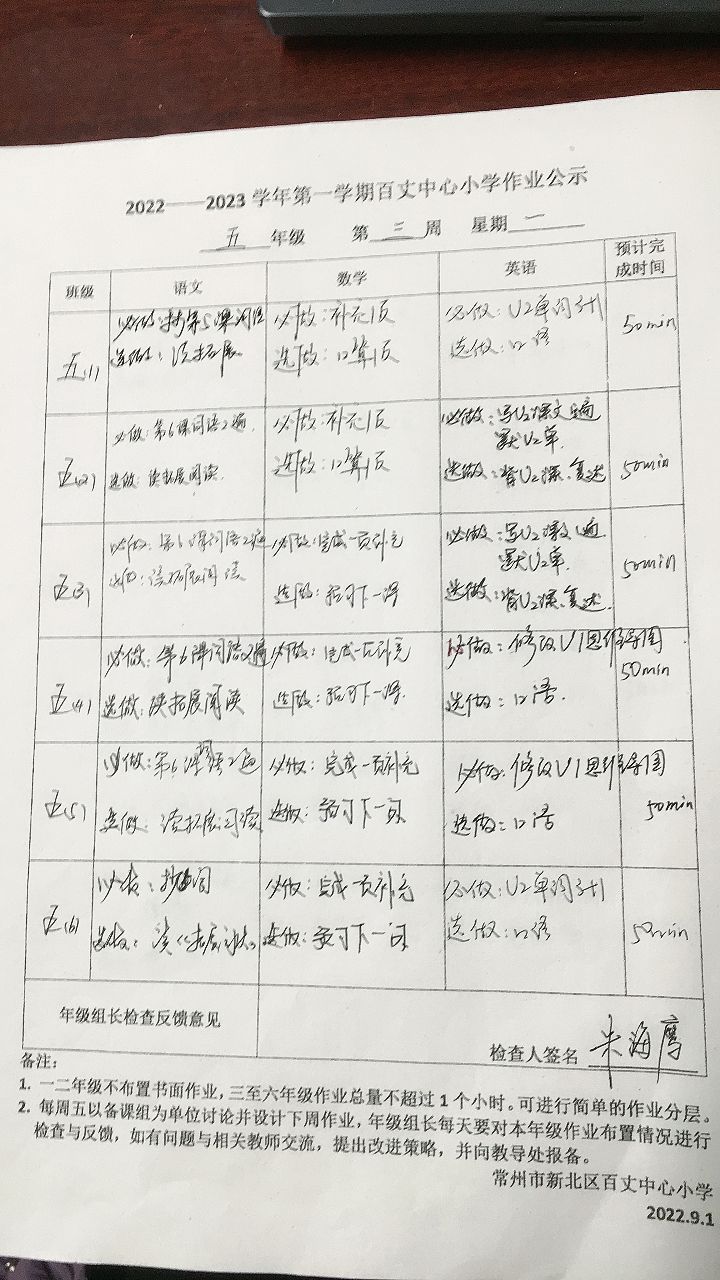 2022——2023 学年第一学期百丈中心小学作业公示
五 年级 第 三 周 星期 二
班级 语文 数学 英语 预计完成时间
五(1)
必做:抄第5课词语
选做:读拓展
必做:补充1页
选做:口算1页
必做:U2单词
选做:口语
50min
五(2)
必做:第6课词语2遍
选做:读拓展阅读
必做:补充1页
选做:口算1页
必做:写U2课文1遍
默U2单.
选做:背U2课.复述
50min
五(3)
必做:第6课词语2遍
选做:读拓展阅读
必做:完成一页补充
选做:预习下一课
必做:写U2课文1遍
默U2单.
选做:背U2课.复述.
50min
五(4)
必做:第6课词语2遍
选做:读拓展阅读
必做:完成一页补充
选做:预习下一课.
必做:修改U1思维导图.
选做:口语.
50min
五(5)
必做:第6课词语2遍
选做:读拓展阅读
必做:完成一页补充
选做:预习下一课
必做:修改U1思维导图
选做:口语
50min
五(6)
必做:抄词
选做:读拓展
必做:完成一页补充
选做:预习下一课
必做:U2单词
选做:口语
50min
年级组长检查反馈意见
检查人签名 朱海鹰
备注:
1. 一二年级不布置书面作业,三至六年级作业总量不超过1个小时。可进行简单的作业分层。
2. 每周五以备课组为单位讨论并设计下周作业,年级组长每天要对本年级作业布置情况进行
检查与反馈,如有问题与相关教师交流,提出改进策略,并向教导处报备。
常州市新北区百丈中心小学
2022.9.1